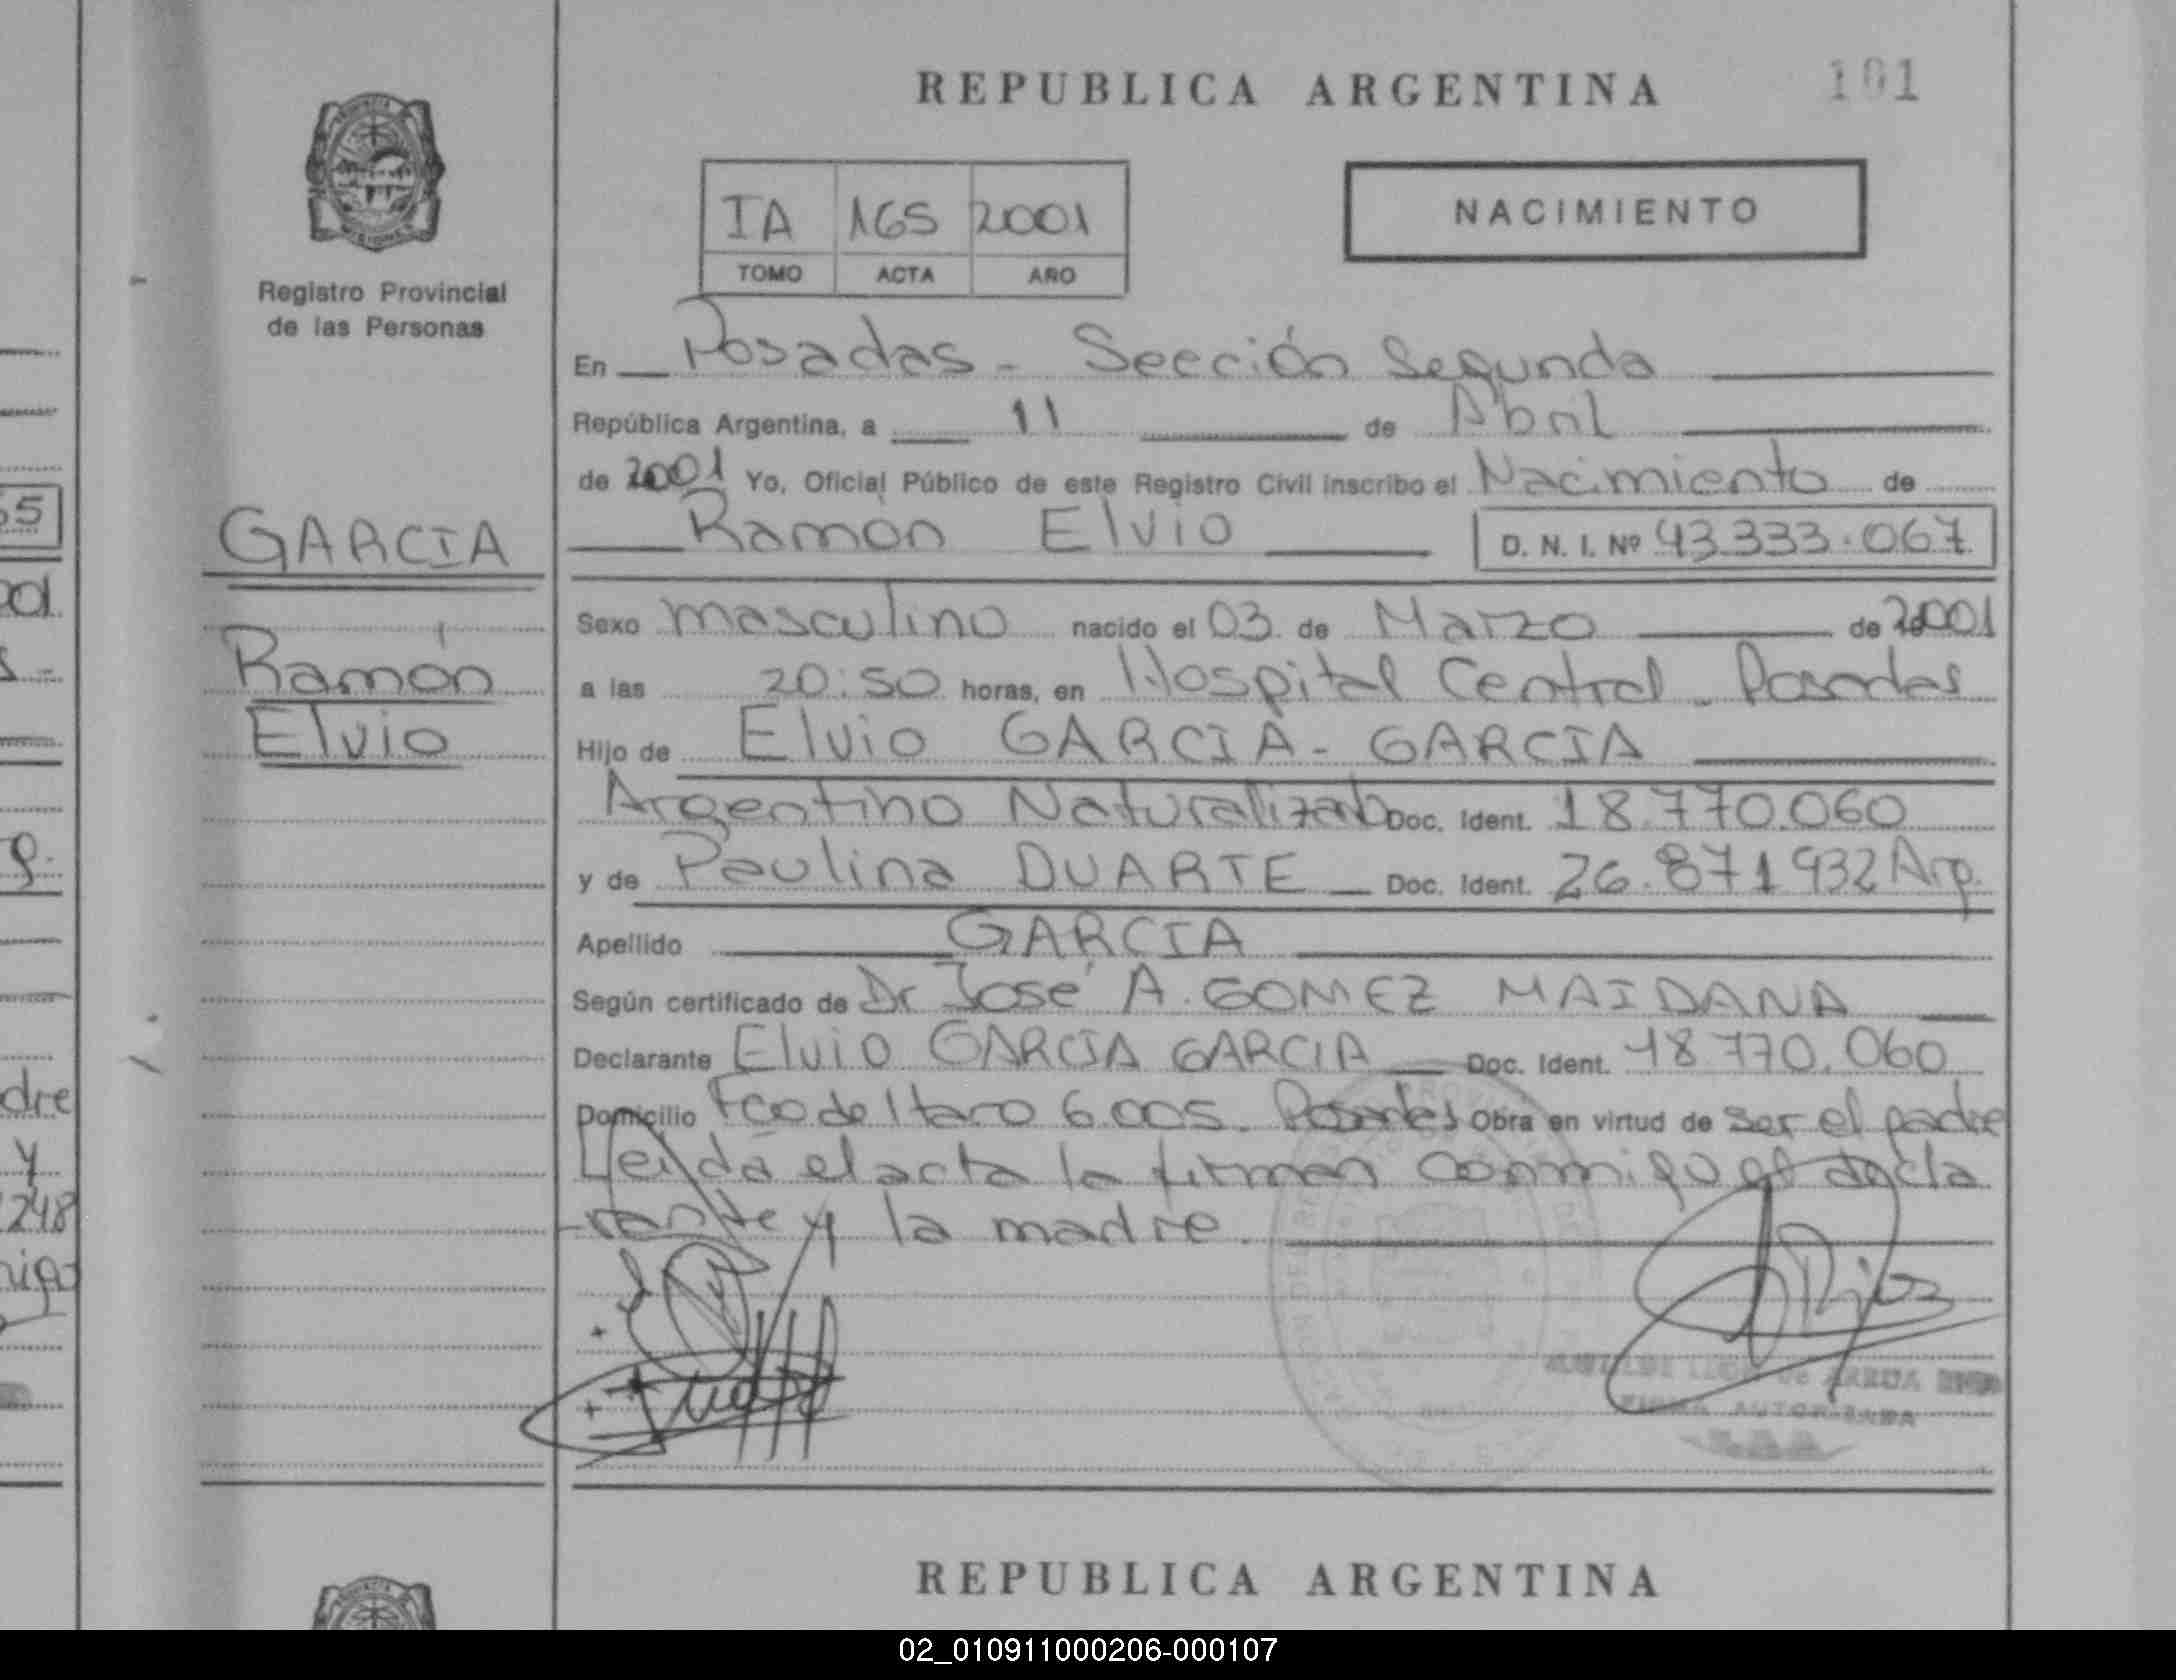 REPUBLICA ARGENTINA
101
IA 165 2001
TOMO ACTA AÑO
NACIMIENTO
Registro Provincial
de las Personas
En Posadas - Sección Segunda
República Argentina, a 11 de Abril
de 2001 Yo, Oficial Público de este Registro Civil inscribo el Nacimiento de
Ramón Elvio D. N. I. Nº 43.333.067
GARCIA
Ramón
Elvio
Sexo masculino nacido el 03 de Marzo de 2001
a las 20:50 horas, en Hospital Central - Posadas
Hijo de Elvio GARCIA - GARCIA
Argentino Naturalizado Doc. Ident. 18.770.060
y de Paulina DUARTE Doc. Ident. 26.871932 Arg.
Apellido GARCIA
Según certificado de Dr José A. GOMEZ MAIDANA
Declarante Elvio GARCIA GARCIA Doc. Ident. 18 770.060
Domicilio Fco de Haro 6.005. Posadas Obra en virtud de ser el padre
Leída el acta la firman conmigo el decla
rante y la madre.
FIRMA AUTORIZADA
REPUBLICA ARGENTINA
02_010911000206-000107